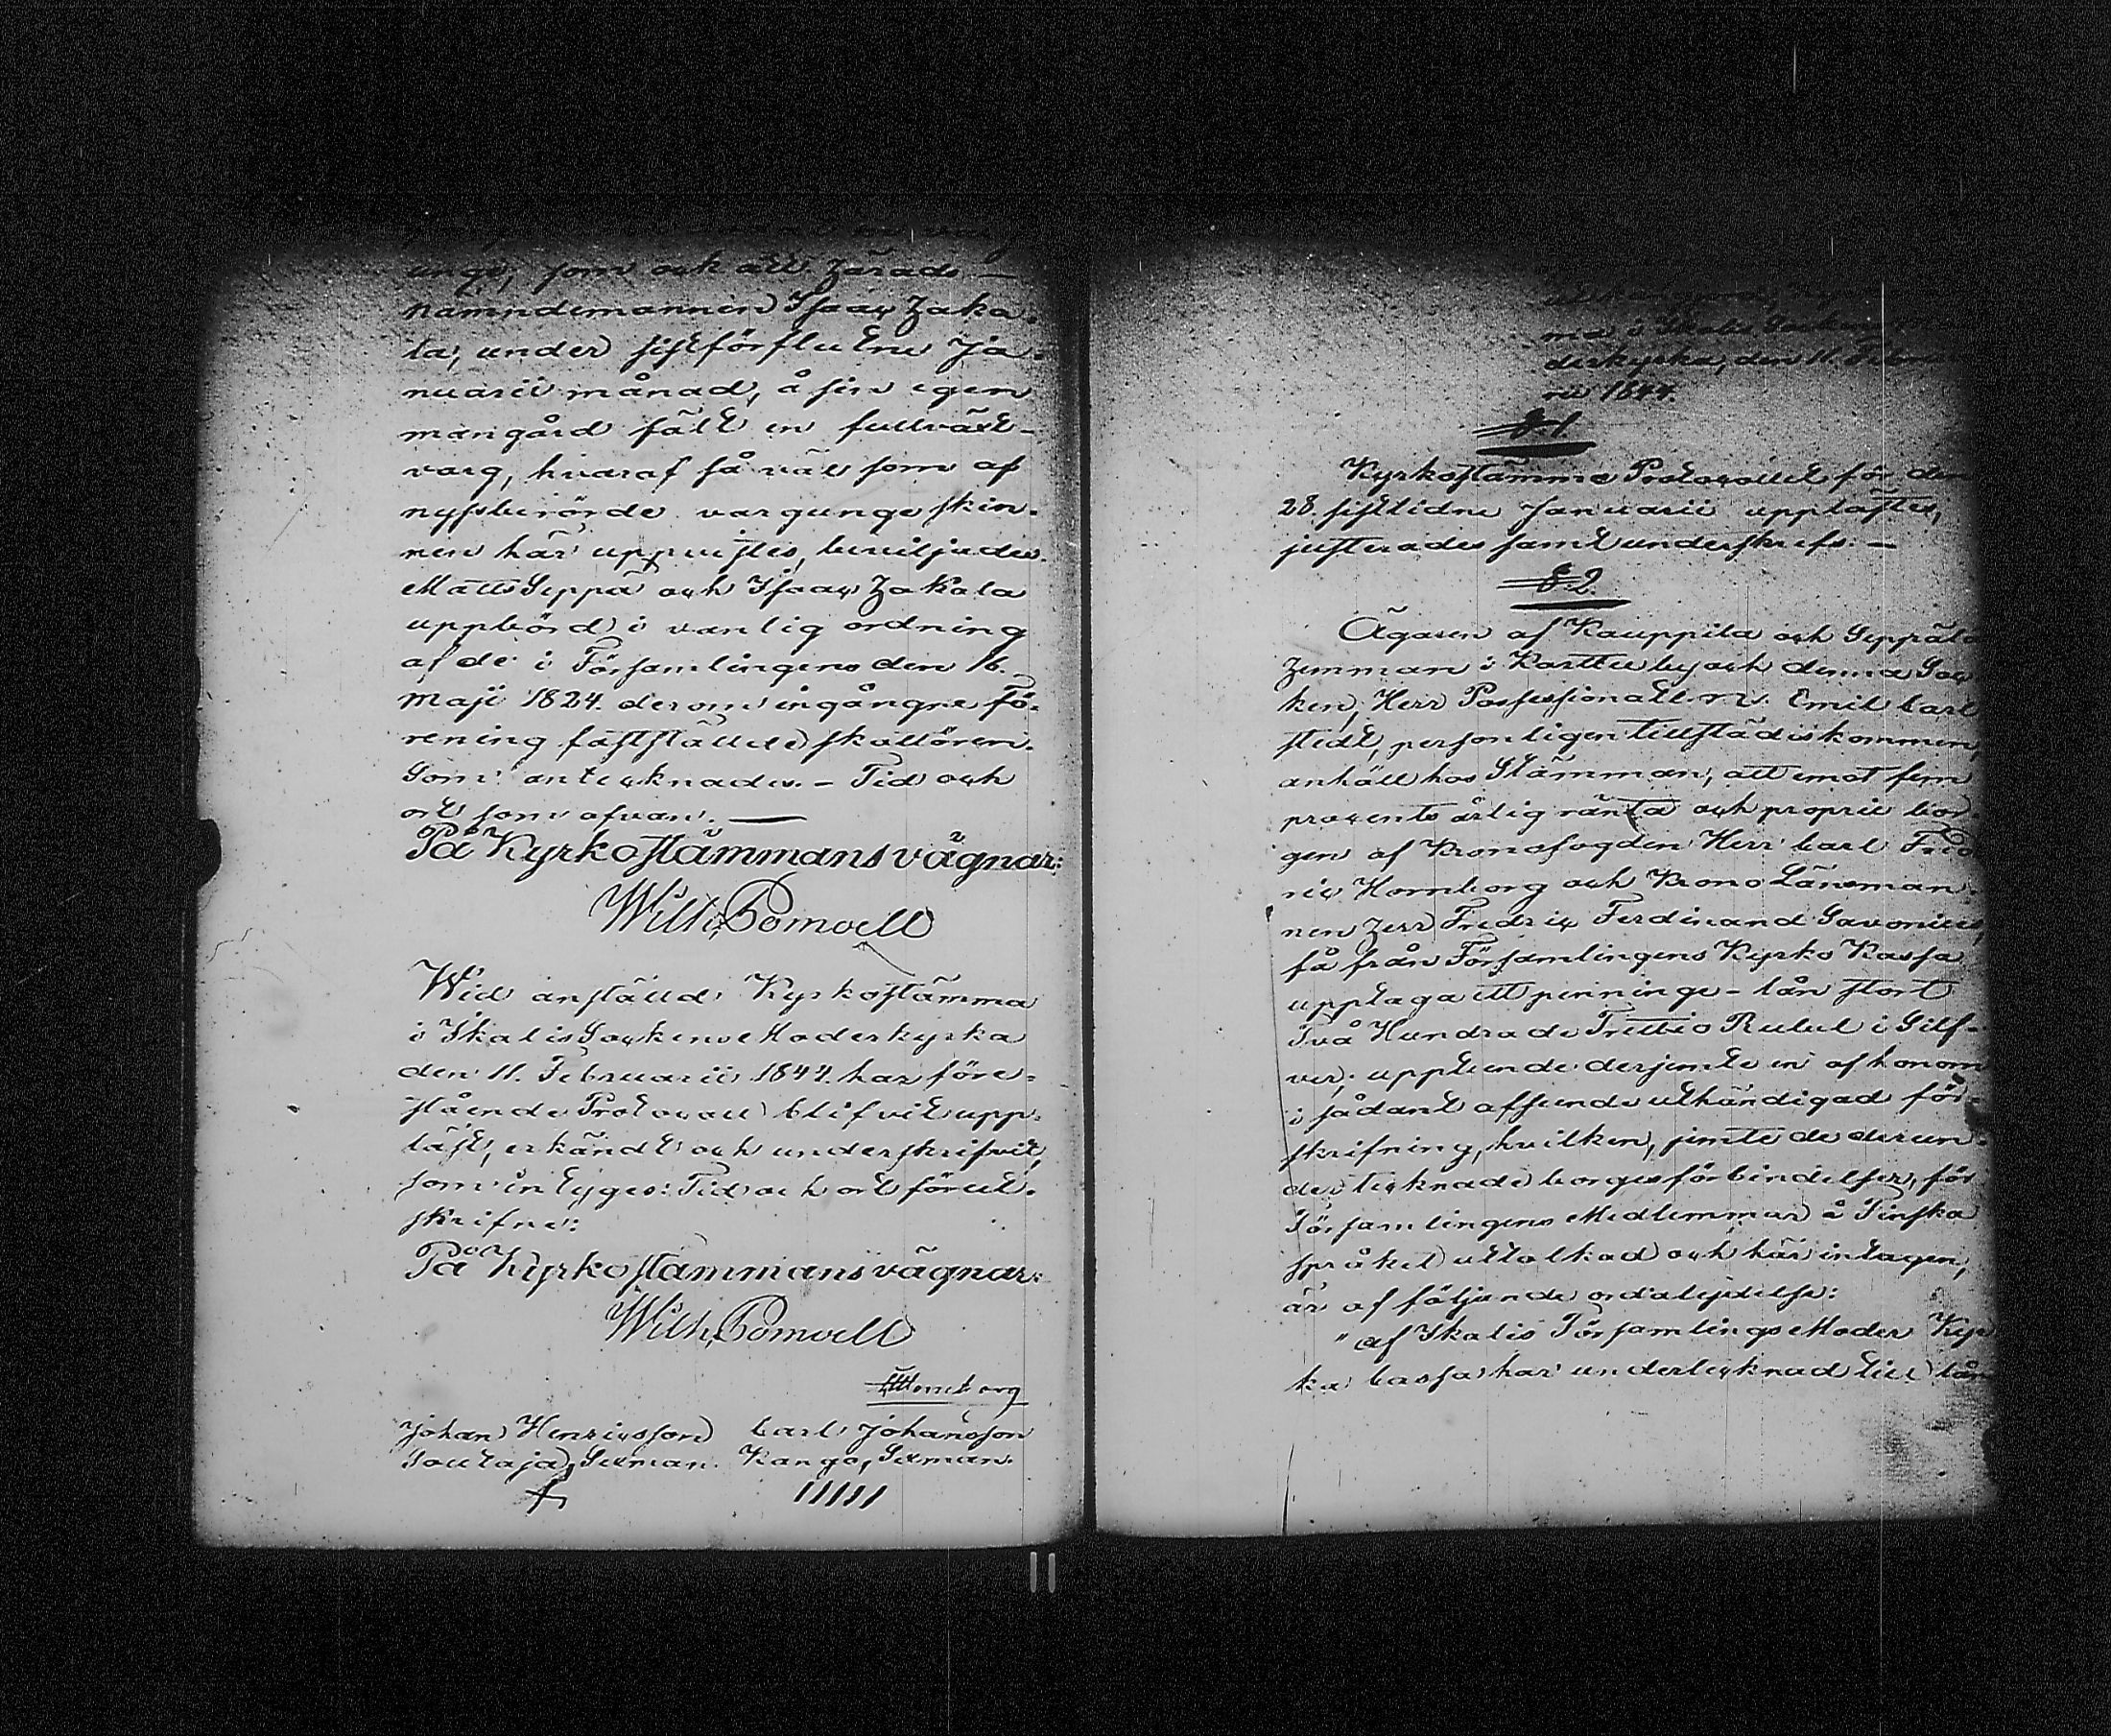 unge, som ock att Härads-
nämndemannen Isaac Haka-
la, under sistförflutne Ja-
nuarii månad, å sin egen
mangård fält en fullväxt
varg, hvaraf så väl som af
nyssberörde vargunge skin-
nen här uppvistes, beviljades
Matts Seppä och Isaac Hakala
uppbörd i vanlig ordning
af de i Församlingens den 16.
Maji 1824. derom ingångne fö-
rening fastställde skallören.
Som antecknades. - Tid och
ort som ofvan. —
På Kyrkostämmans vägnar:
Wilh. Pomoell
Wid anställd Kyrkostämma
i Ikalis Sockens Moderkyrka
den 11. Februarii 1844. har före-
stående Protocoll blifvit upp-
läst, erkändt och underskrifvit,
som intyges: Tid och ort förut-
skrifne:
På Kyrkostämmans vägnar:
Wilh. Pomoell
Hornborg
Johan Henricsson Carl Johansson
Soutaja, Sexman. Kango, Sexman.
ma i Ikalis Sockens
derkyrka, den 11. Februa-
rii 1844.
§ 1.
Kyrkostämmo Protocollet för den
28. sistlidne Januarii upplästes,
justerades samt underskrefs. —
§ 2.
Ägaren af Kauppila och Seppälä
Hemman i Karttu by och denna Soc-
ken, Herr Possessionaten Emil Carl
stedt, personligen tillstädeskommen,
anhöll hos Stämman, att emot fem
procents årlig ränta och proprie bor-
gen af Kronofogden Herr Carl Fred
ric Hornborg och Krono Länsman-
nen Herr Fredric Ferdinand Savonius,
få från Församlingens Kyrko Kassa
upptaga ett penninge-lån stort
Två Hundrade Trettio Rubel i Silf-
ver; uppteende derjemte en af honom
i sådant afseende uthändigad för-
skrifning, hvilken, jemte de derun-
der tecknade borgesförbindelser, för
Församlingens Medlemmar å Finska
språket uttolkad och här intagen,
är af följande ordalydelse:
"af Ikalis Församlings Moder Kyr
ko Cassa har undertecknad till lån